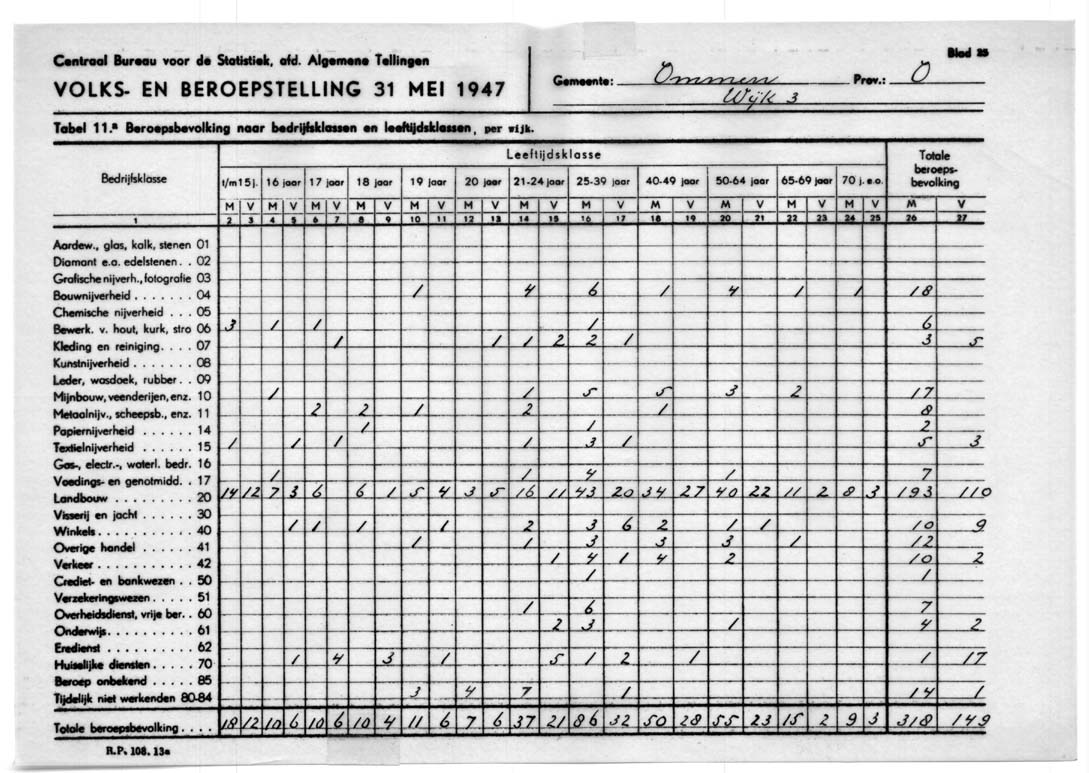 Blad 25
Centraal Bureau voor de Statistiek, afd. Algemene Tellingen
Gemeente: Ommen Prov.: O
VOLKS- EN BEROEPSTELLING 31 MEI 1947
Wijk 3
Tabel 11.ª Beroepsbevolking naar bedrijfsklassen en leeftijdsklassen, per wijk.
Bedrijfsklasse Leeftijdsklasse Totale beroeps-bevolking
t/m 15 j. 16 jaar 17 jaar 18 jaar 19 jaar 20 jaar 21-24 jaar 25-39 jaar 40-49 jaar 50-64 jaar 65-69 jaar 70 j. e.o.
M V M V M V M V M V M V M V M V M V M V M V M V M V
1 2 3 4 5 6 7 8 9 10 11 12 13 14 15 16 17 18 19 20 21 22 23 24 25 26 27
Aardew., glas, kalk, stenen 01
Diamant e.a. edelstenen . . 02
Grafische nijverh., fotografie 03
Bouwnijverheid . . . . . . . 04 1 4 6 1 4 1 1 18
Chemische nijverheid . . . 05
Bewerk. v. hout, kurk, stro 06 3 1 1 1 6
Kleding en reiniging. . . . 07 1 1 1 2 2 1 3 5
Kunstnijverheid . . . . . . . 08
Leder, wasdoek, rubber . . 09
Mijnbouw, veenderijen, enz. 10 1 1 5 5 3 2 17
Metaalnijv., scheepsb., enz. 11 2 2 1 2 1 8
Papiernijverheid . . . . . . 14 1 1 2
Textielnijverheid . . . . . . 15 1 1 1 1 3 1 5 3
Gas-, electr.-, waterl. bedr. 16
Voedings- en genotmidd. . 17 1 1 4 1 7
Landbouw . . . . . . . . . 20 14 12 7 3 6 6 1 5 4 3 5 16 11 43 20 34 27 40 22 11 2 8 3 193 110
Visserij en jacht . . . . . . 30
Winkels . . . . . . . . . . 40 1 1 1 1 2 3 6 2 1 1 10 9
Overige handel . . . . . . 41 1 1 3 3 3 1 12
Verkeer . . . . . . . . . . 42 1 4 1 4 2 10 2
Crediet- en bankwezen . . 50 1 1
Verzekeringswezen . . . . 51
Overheidsdienst, vrije ber. . 60 1 6 7
Onderwijs . . . . . . . . . 61 2 3 1 4 2
Eredienst . . . . . . . . . 62
Huiselijke diensten . . . . . 70 1 4 3 1 5 1 2 1 1 17
Beroep onbekend . . . . . 85
Tijdelijk niet werkenden 80-84 3 4 7 1 14 1
Totale beroepsbevolking . . . . 18 12 10 6 10 6 10 4 11 6 7 6 37 21 86 32 50 28 55 23 15 2 9 3 318 149
R.P. 108. 13ª